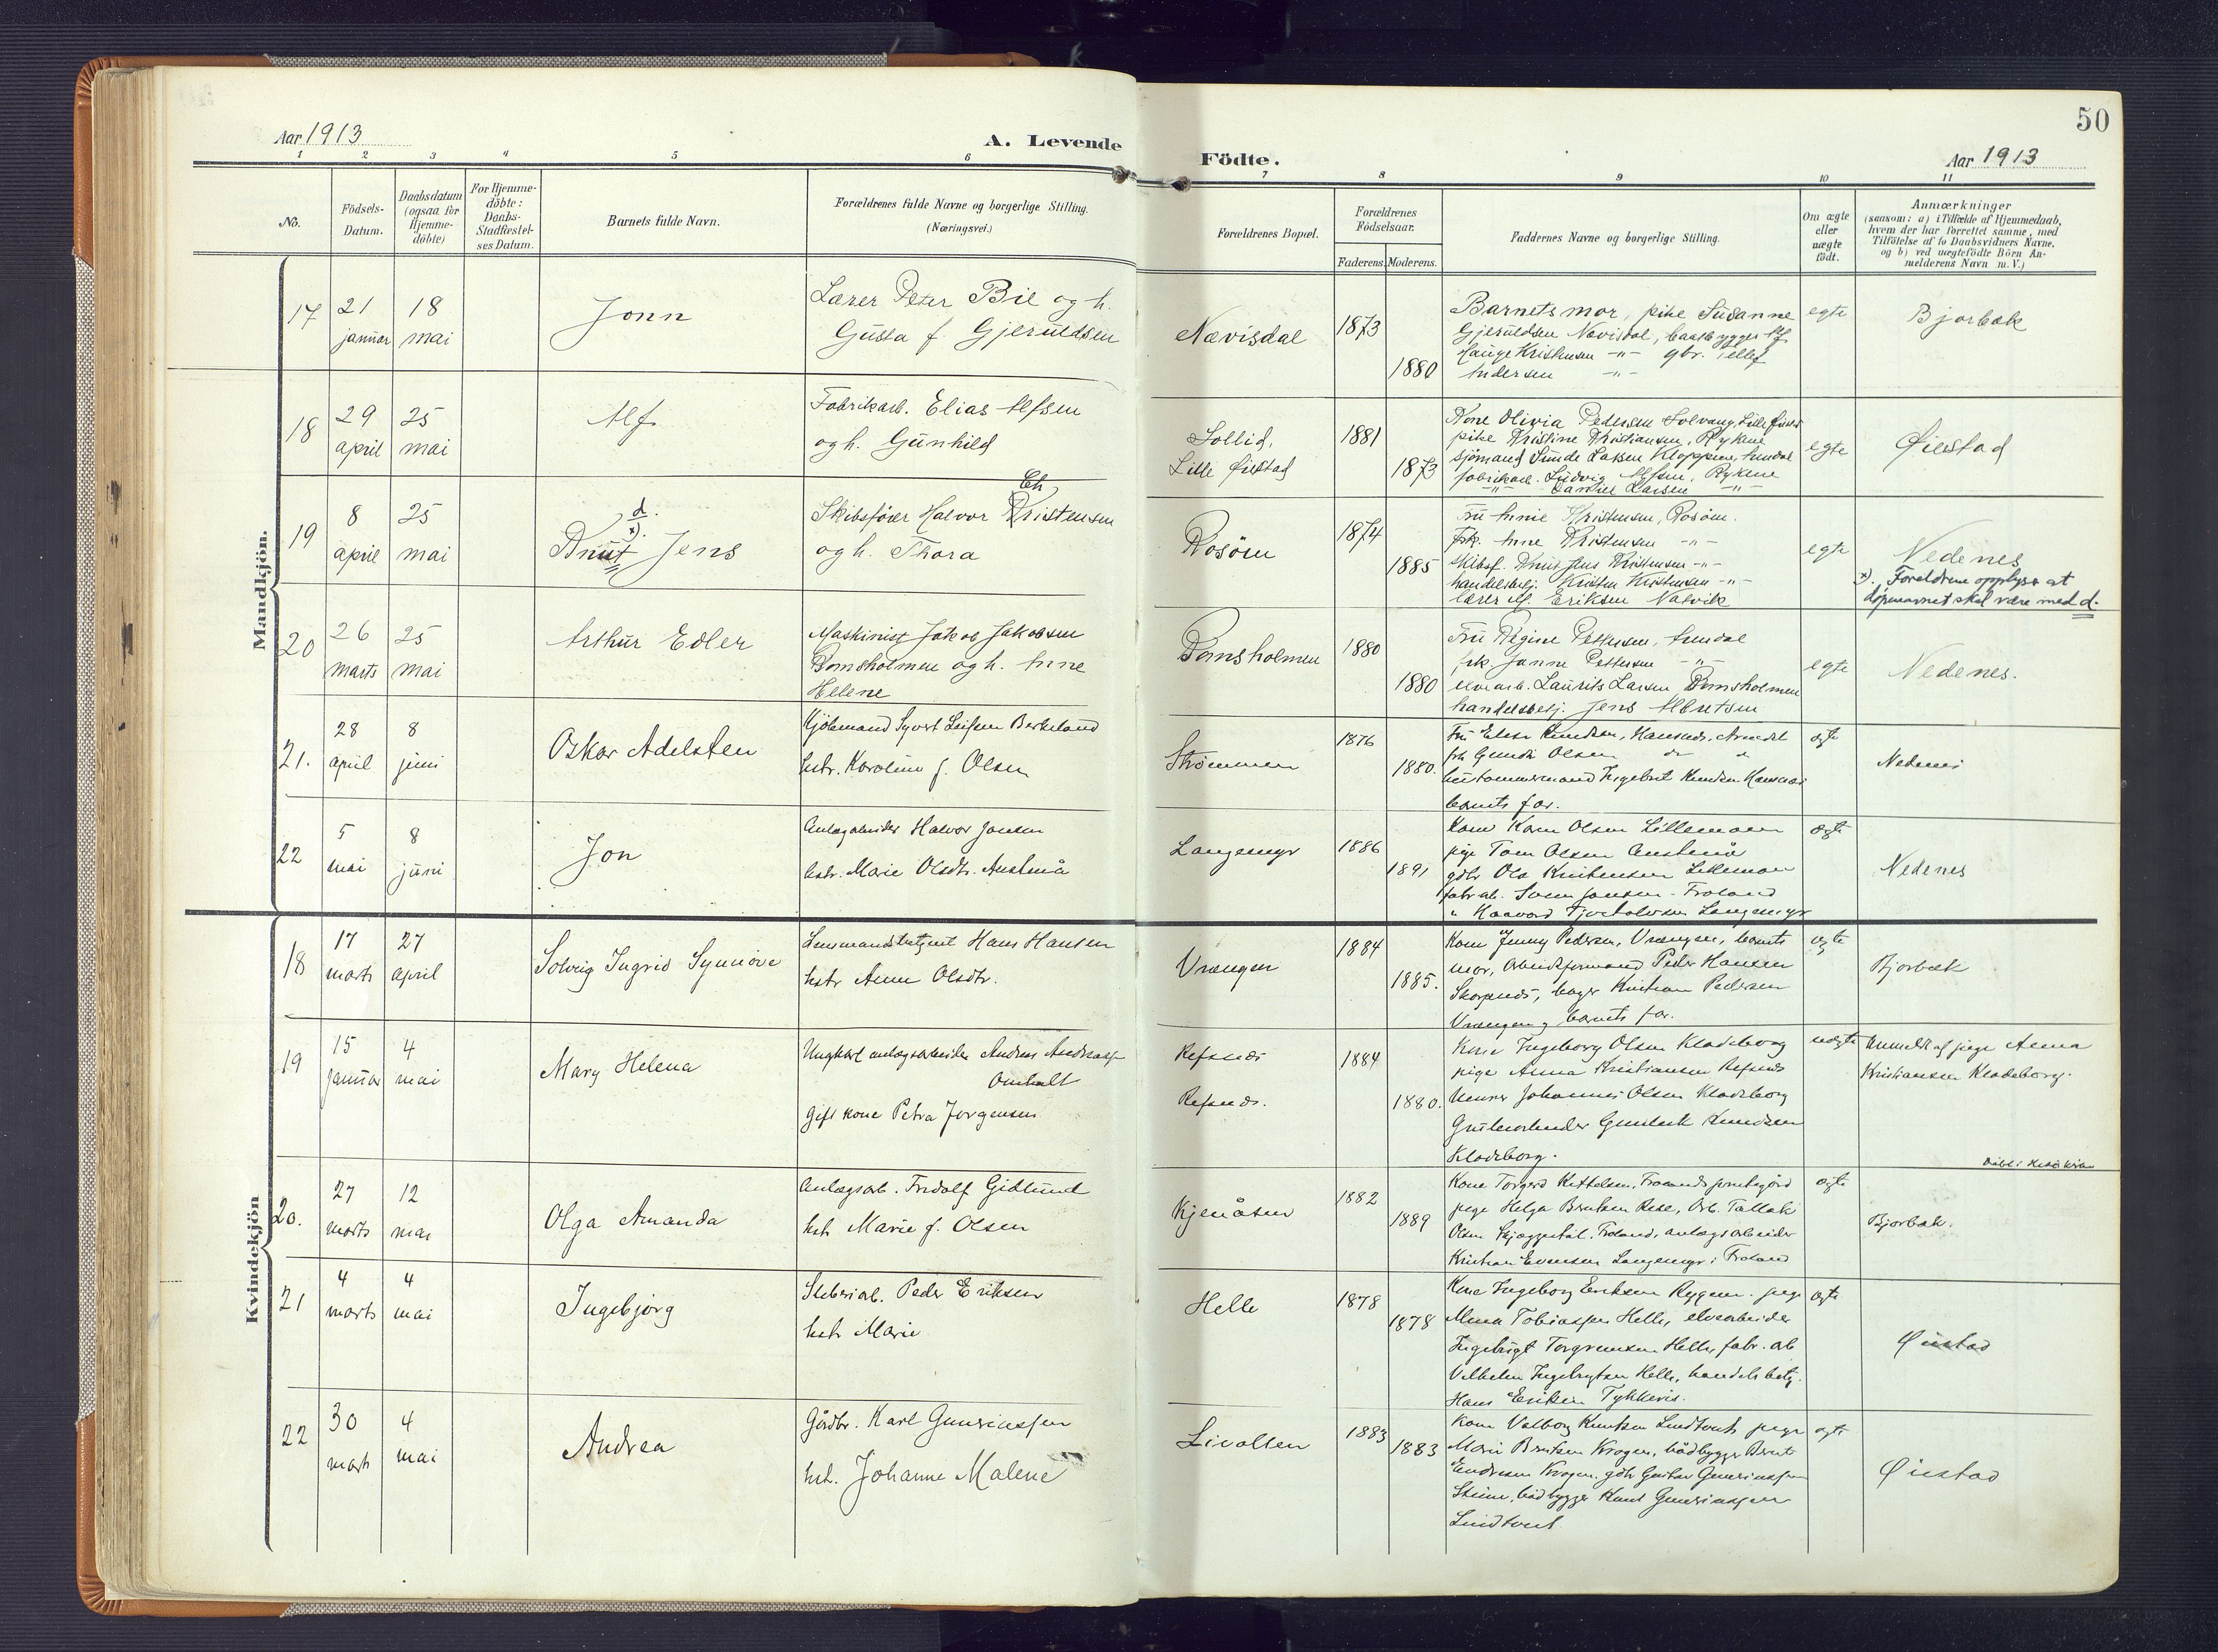 50
Aar 1913
A. Levende
Födte.
Aar 1913
1 2 3 4 5 6 7 8 9 10 11
No.
Födsels-
Datum.
Daabsdatum
(ogsaa for
Hjemme-
döbte)
For Hjemme-
döbte:
Daabs-
Stadfæstel-
ses Datum.
Barnets fulde Navn.
Forældrenes fulde Navne og borgerlige Stilling.
(Næringsvei.)
Forældrenes Bopæl.
Forældrenes
Födselsaar.
Faderens. Moderens.
Faddernes Navne og borgerlige Stilling.
Om ægte
eller
uægte
födt.
Anmærkninger
(saasom: a) i Tilfælde af Hjemmedaab,
hvem der har forrettet samme, med
Tilföielse af to Daabsvidners Navne,
og b) ved uægtefödte Börn An-
melderens Navn m. V.)
Mandkjön.
17
21
januar
18
mai
Jonn
Lærer Peter Bie og h.
Gusta f. Gjeruldsen
Nævisdal
1873
1880
Barnets mor, pike Susanne
Gjeruldsen Nævisdal, baatbygger
Hauge Kristensen -"- gbr.
Andersen -"-
egte
Bjorbæk
18
29
april
25
mai
Alf
Fabrikarb. Elias Alfsen
og h. Gunhild
Sollid,
Lille Øiestad
1881
1873
Kone Olivia Pedersen Solvang, Lille
pike Kristine Kristiansen, Rykene
sjömand Larsen Kloppene, Arendal
fabrikarb. Ludvig Alfsen, Rykene
-"- Daniel Larsen -"-
egte
Øiestad
19
8
april
25
mai
d.
x).
Knut Jens
Ch
Skibsförer Halvor Kristensen
og h. Thora
Rosöen
1874
1885
Fru Anne Kristensen, Rosöen.
frk. Anne Kristensen -"-
Skibsf. Knut Jens Kristensen -"-
handelsbetj. Kristen Kristensen -"-
lærer Eriksen Natvik
egte
Nedenes
x). Foreldrene opplyser at
döpenavnet skal være med d.
20
26
marts
25
mai
Arthur Edler
Maskinist Jakob Jakobsen
Bomsholmen og h. Anne
Helene
Bomsholmen
1880
1880
Fru Regine Pettersen, Arendal
frk. Janne Pettersen -"-
elvearb. Laurits Larsen Bomsholmen
handelsbetj. Jens Albretsen
egte
Nedenes.
21.
28
april
8
juni
Oskar Adelsten
Kjöbmand Syvert Leifsen Berkeland
hstr. Karoline f. Olsen
Strömmen
1876
1880.
Fru Elise Knudsen, Hansnæs, Arendal
frk Gunda Olsen
hustømmermand Ingebret Knudsen Hansnæs
barnets far.
egte
Nedenes
22
5
mai
8
juni
Jon
Anlægsarbeider Halvor Jansen
hstr. Marie Olsdtr. Austenå
Langemyr
1886
1891
Kone Karen Olsen Lillemoen
pige Tom Olsen Austenå
gdbr Ola Kristensen Lillemoen
fabr.arb. Sven Jansen - Froland
" Haavord Tjostolvsen Langemyr
ægte
Nedenes
Kvindekjön
18
17
marts
27
april
Solveig Ingrid Synnöve
Lensmandsbetjent Hans Hansen
hstr Anne Olsdtr.
Vrængen
1884
1885.
Kone Jenny Pedersen, Vrængen, barnets
mor, Arbeidsformand Peder Hansen
Skarpnes, bager Kristian Pedersen
Vrængen, barnets far.
egte
Bjorbæk
19
15
januar
4
mai
Mary Helena
Ungkarl anlægsarbeider Andreas Andreassen
Omholt
Gift kone Petra Jorgensen
Refsnes
Refsnes.
1884
1880.
Kone Ingeborg Olsen Klodeborg
pige Anna Kristiansen Refsnes
Johannes Olsen Klodeborg
Grubearbeider Gunleik Knudsen
Klodeborg.
uægte
Anmeldt af pige Anna
Kristiansen Klodeborg.
20.
27
marts
12
mai
Olga Amanda
Anlægsarb. Fridolf Gidlund
hstr Marie f. Olsen
Kjenåsen
1882
1889
Kone Torgerd Kittelsen, Frolands prestegård
pige Helga Berntsen Rise, Arb. Tallak
Olsen Skjæggestøl, Froland, anlægsarbeider
Kristian Evensen Langemyr i Froland
ægte
Bjorbæk.
21
4
marts
4
mai
Ingebjörg
Sliberiarb. Peder Eriksen
hstr Marie
Helle
1878
1878
Kone Ingeborg Eriksen Rygene. pige
Anna Tobiassen Helle, elvearbeider
Ingebrigt Torgrimsen Helle, fabr. arb
Vilhelm Ingebrigtsen Helle, handelsbetj.
Hans Eriksen Tykkeris.
ægte
Øiestad
22
30
marts
4
mai
Andrea
Gårdbr. Karl Gunvaldsen
hstr. Johanne Malene
Livolten
1883
1883
Kone Valborg Knutsen Lindtveit pige
Marie Berntsen Krogen, bådbygger Bernt
Endresen Krogen, gdbr Gustav
bådbygger Knut
Lindtveit
ægte
Øiestad